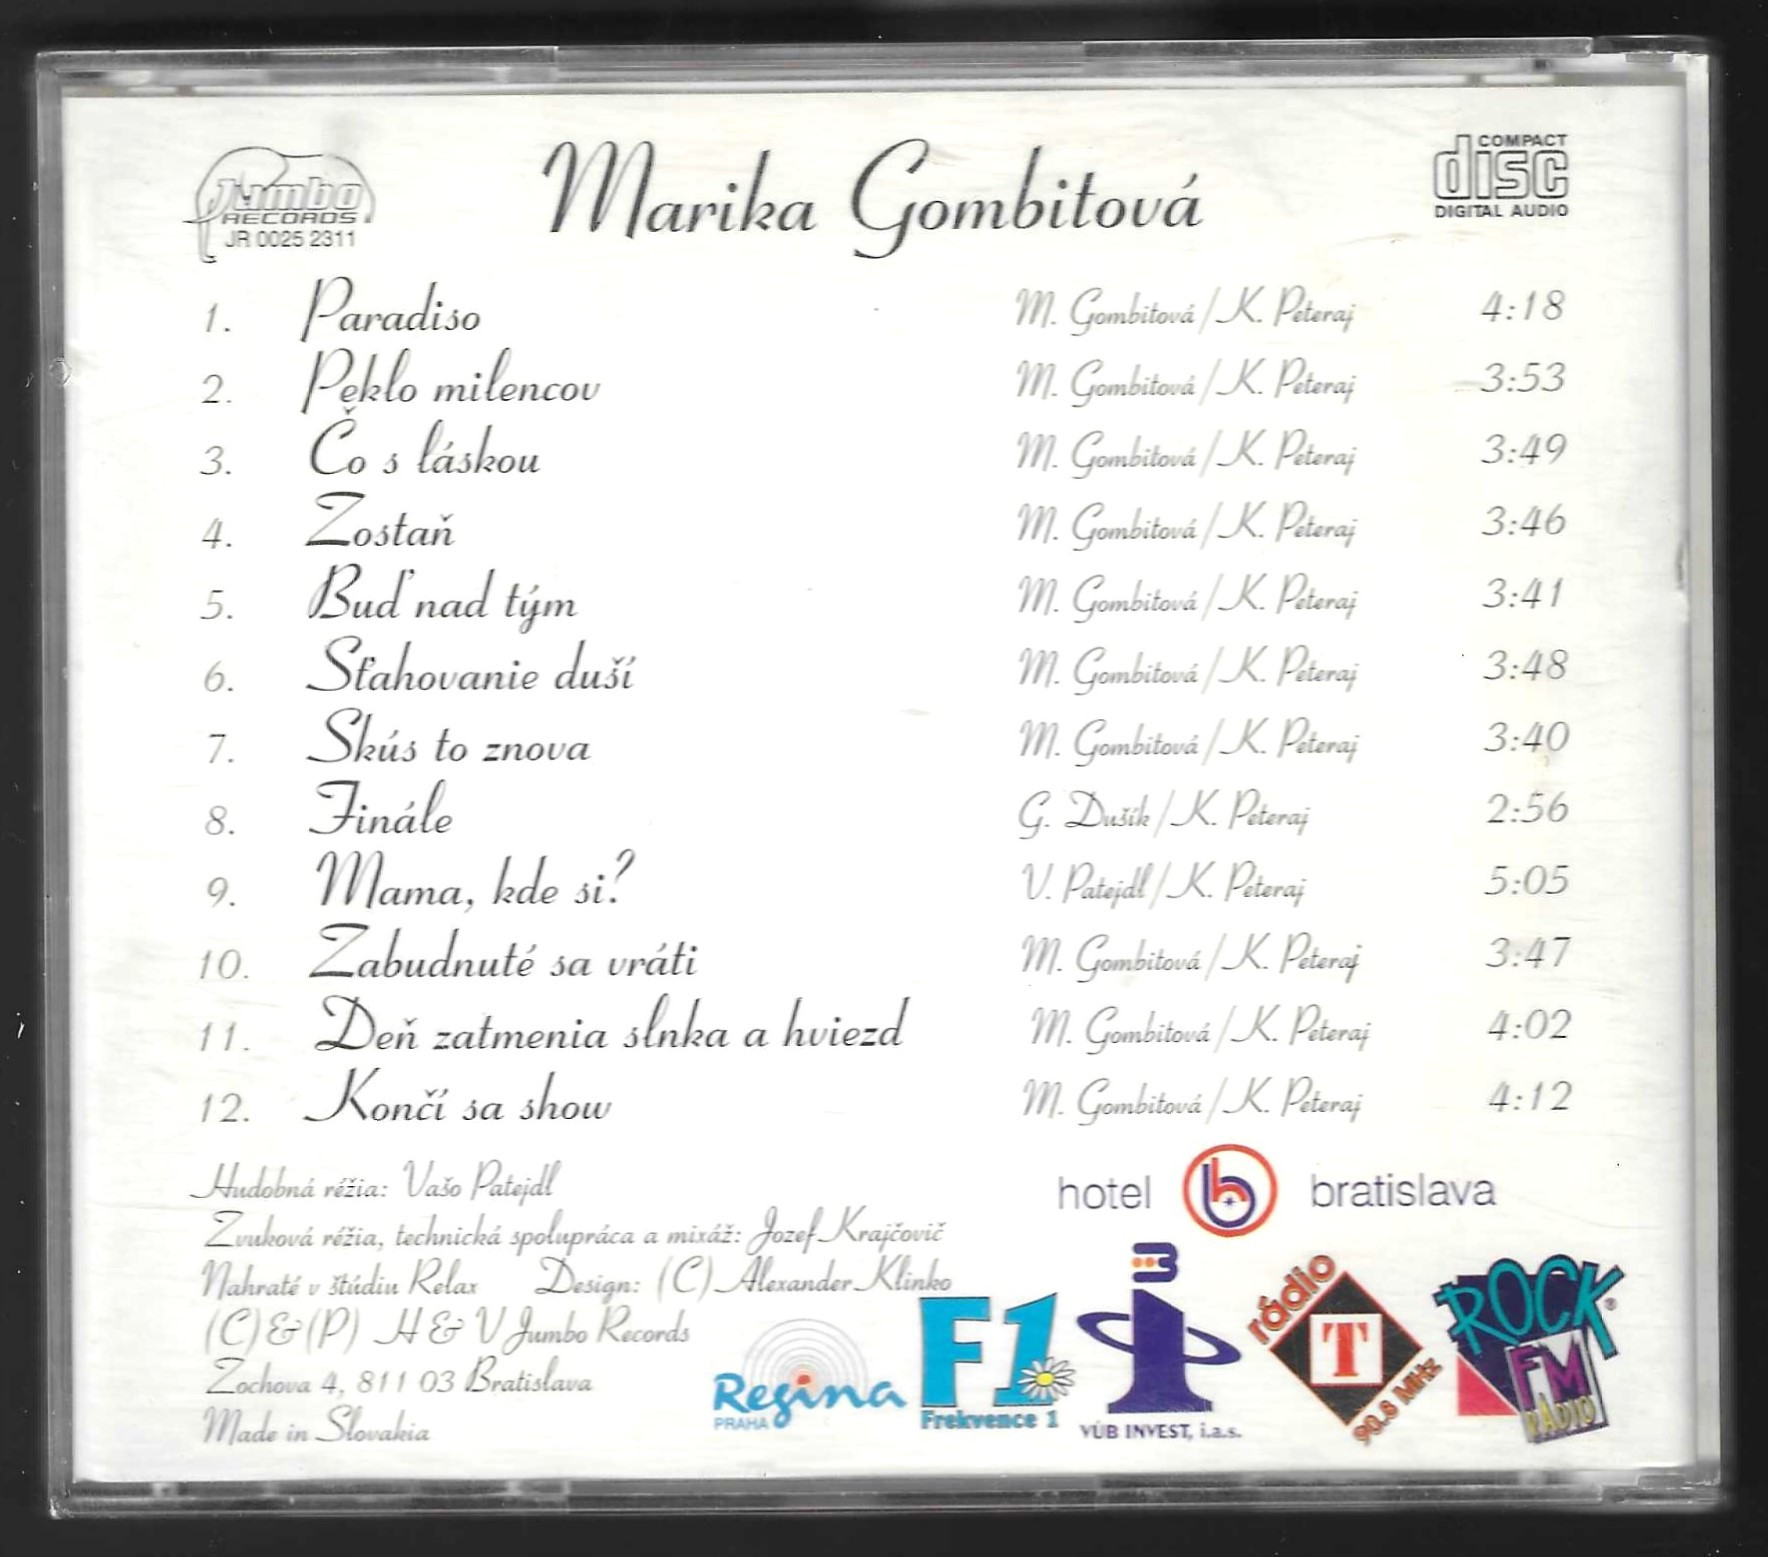 Jumbo
RECORDS
JR 0025 2311
Marika Gombitová
COMPACT
disc
DIGITAL AUDIO
1. Paradiso M. Gombitová/K. Peteraj 4:18
2. Peklo milencov M. Gombitová/K. Peteraj 3:53
3. Čo s láskou M. Gombitová/K. Peteraj 3:49
4. Zostaň M. Gombitová/K. Peteraj 3:46
5. Buď nad tým M. Gombitová/K. Peteraj 3:41
6. Sťahovanie duší M. Gombitová/K. Peteraj 3:48
7. Skús to znova M. Gombitová/K. Peteraj 3:40
8. Finále G. Dušík/K. Peteraj 2:56
9. Mama, kde si? V. Patejdl/K. Peteraj 5:05
10. Zabudnuté sa vráti M. Gombitová/K. Peteraj 3:47
11. Deň zatmenia slnka a hviezd M. Gombitová/K. Peteraj 4:02
12. Končí sa show M. Gombitová/K. Peteraj 4:12
Hudobná réžia: Vašo Patejdl
Zvuková réžia, technická spolupráca a mixáž: Jozef Krajčovič
Nahraté v štúdiu Relax Design: (C) Alexander Klinko
(C)&(P) H & V Jumbo Records
Zochova 4, 811 03 Bratislava
Made in Slovakia
hotel b bratislava
Regina
PRAHA
F1
Frekvence 1
VÚB INVEST, i.a.s.
rádio
T
90.8 MHz
ROCK®
FM
RÁDIO